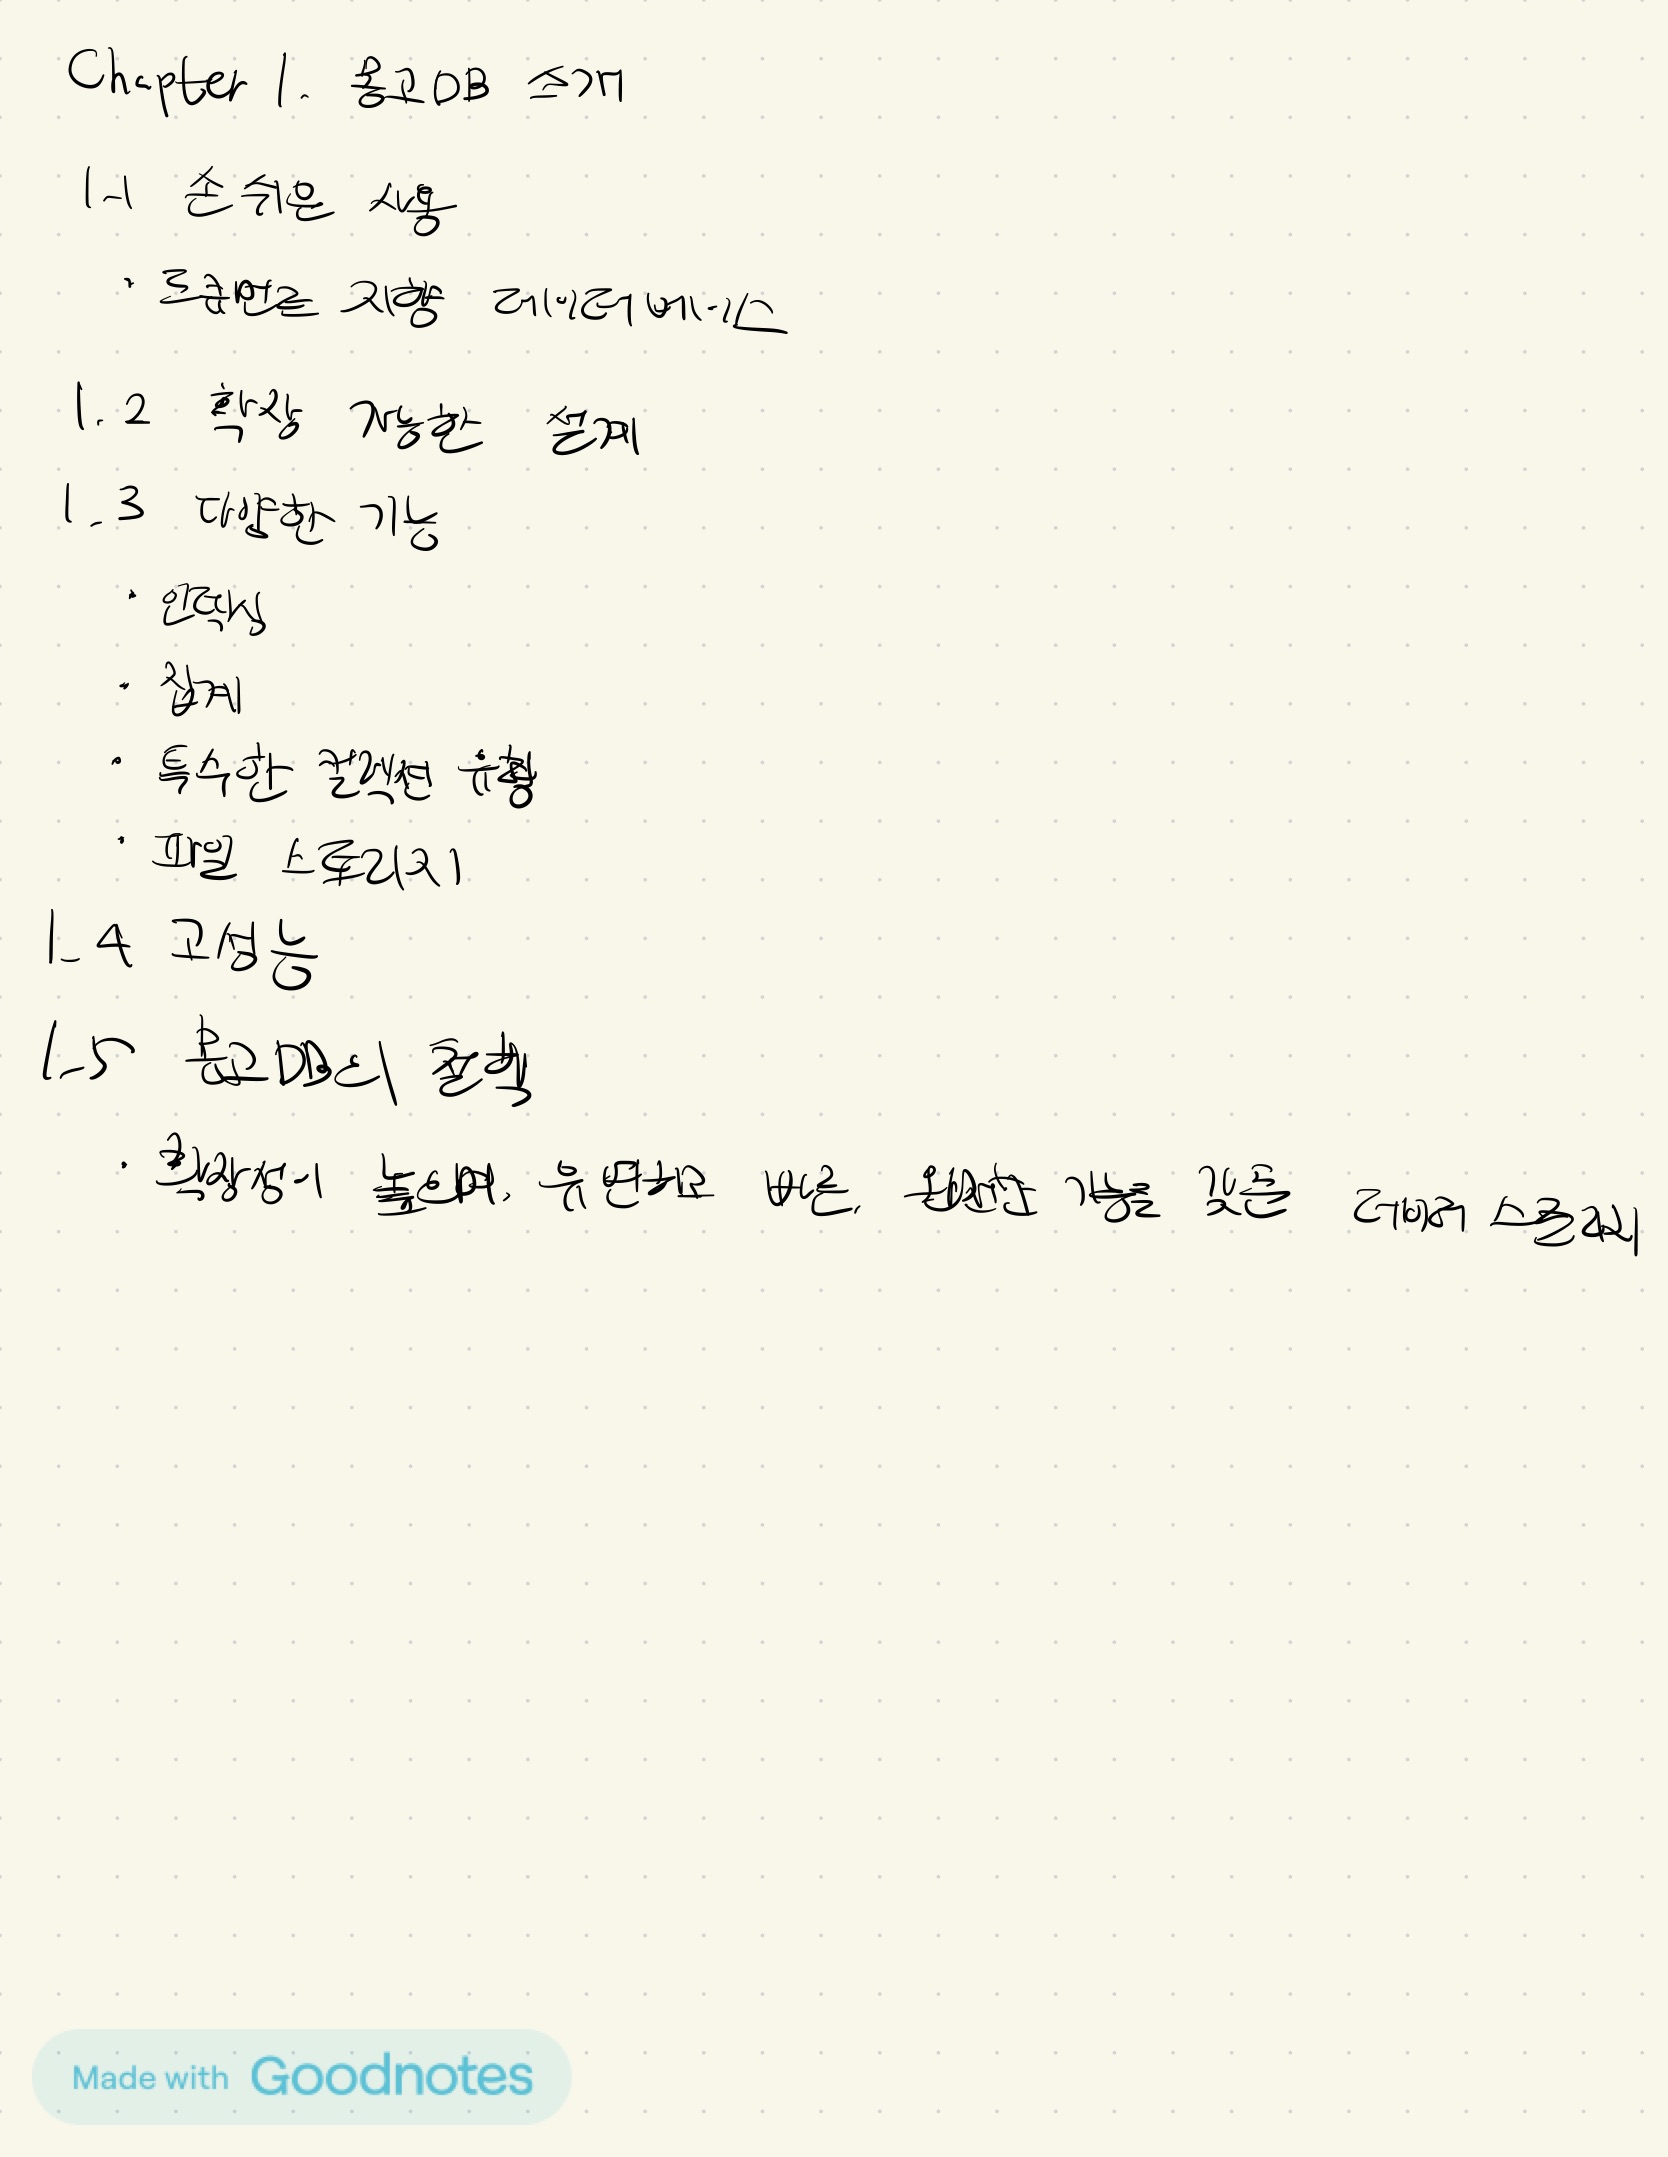 Chapter 1. 몽고DB 소개
1.1 손쉬운 사용
· 도큐먼트 지향 데이터베이스
1.2 확장 가능한 설계
1.3 다양한 기능
· 인덱싱
· 집계
· 특수한 컬렉션 유형
· 파일 스토리지
1.4 고성능
1.5 몽고DB의 철학
· 확장성이 높으며, 유연하고 빠른, 완벽한 기능을 갖춘 데이터 스토리지
Made with Goodnotes